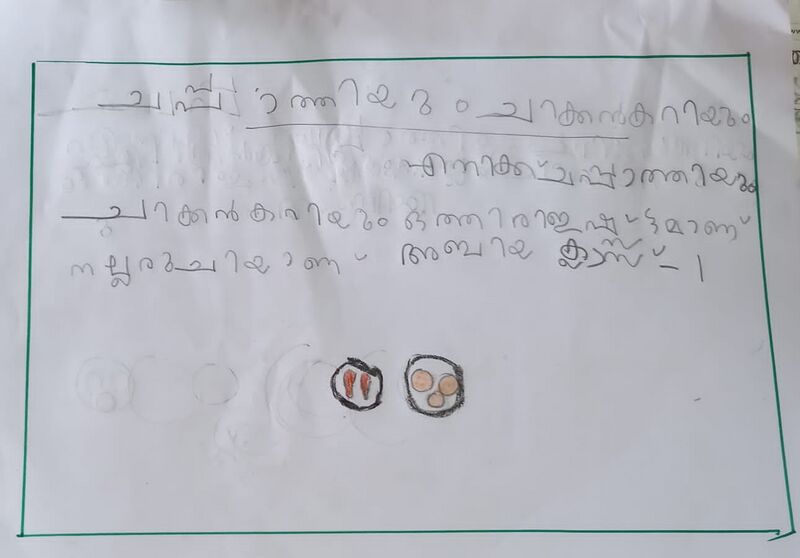 ചപ്പാത്തിയും ചിക്കൻകറിയും
എനിക്ക് ചപ്പാത്തിയും
ചിക്കൻകറിയും ഒത്തിരിഇഷ്ട്ടമാണ്
നല്ലരുചിയാണ് അബിയ ക്ലാസ്സ്-1